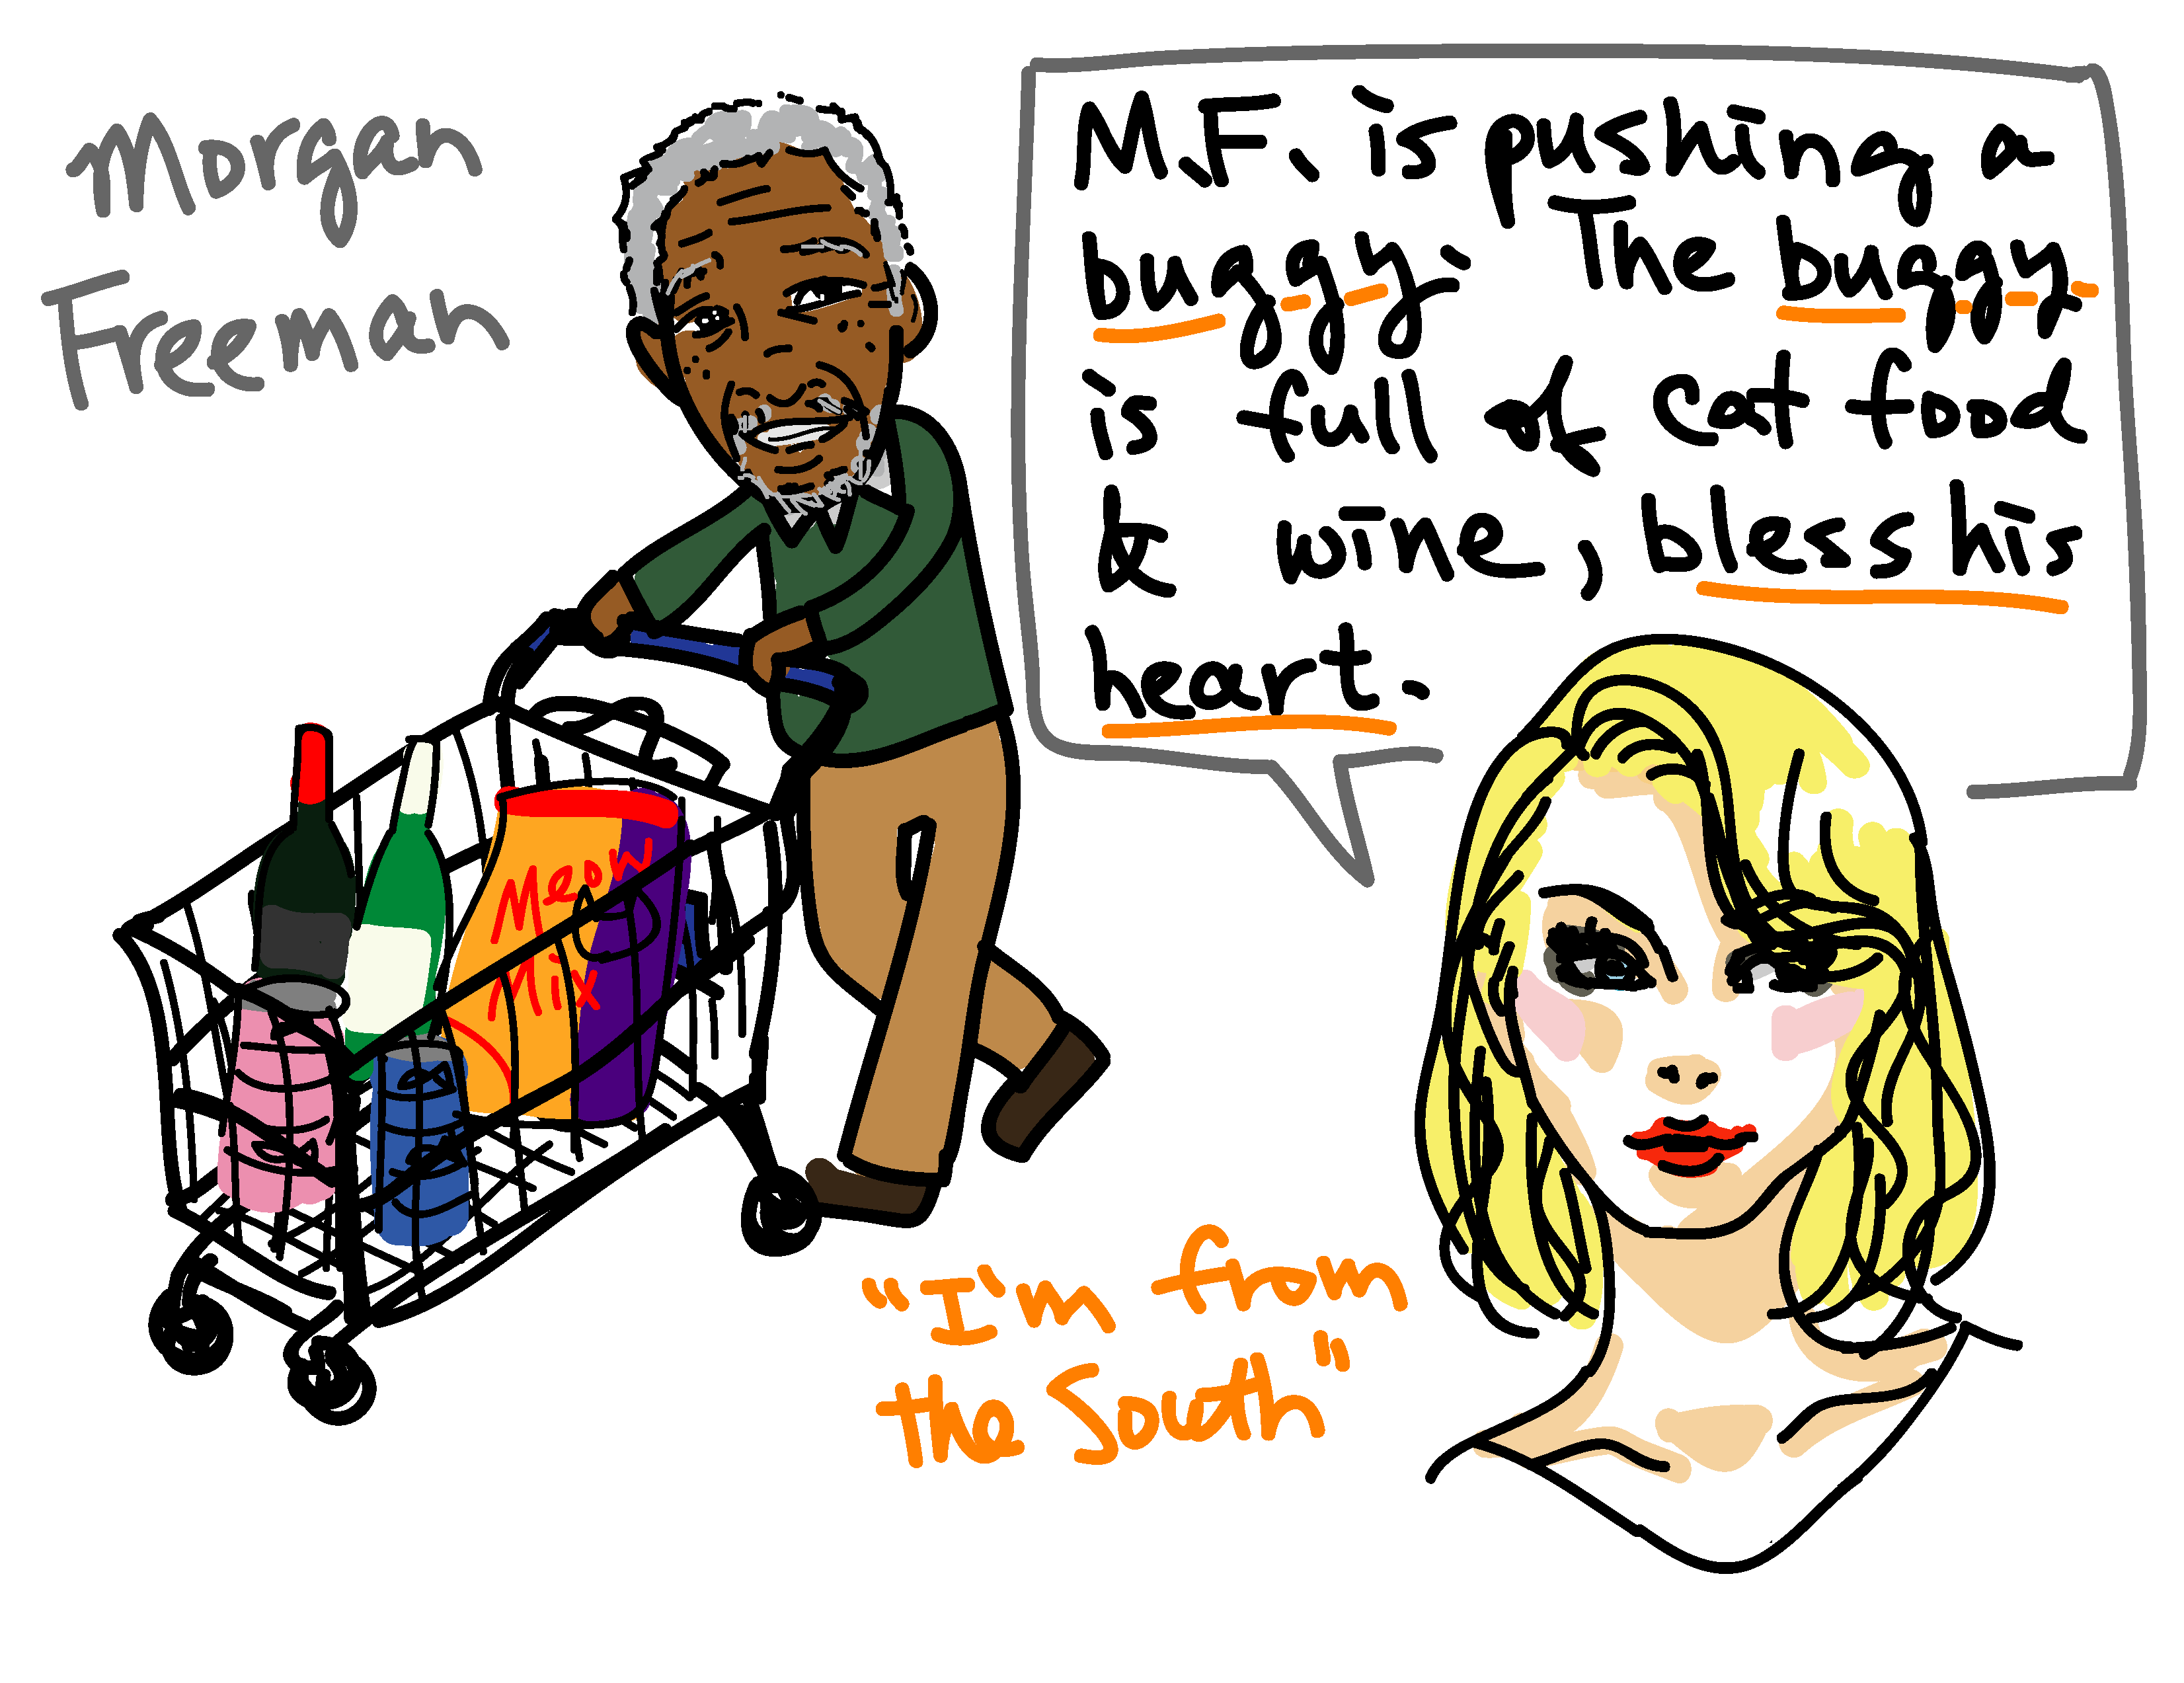 Morgan
Freeman
M.F. is pushing a
buggy. The buggy
is full of cat food
& wine, bless his
heart.
Meow
Mix
"I'm from
the South"